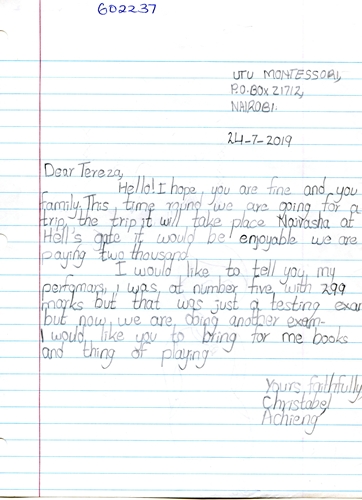 602237
UTU MONTESSORI,
P.O.BOX 21712,
NAIROBI.
24-7-2019
Dear Tereza,
Hello! I hope you are fine and you
family. This time round we are going for a
trip, the trip it will take place Naivasha at
Hell's gate it would be enjoyable we are
paying two thousand
I would like to tell you my
perfomars, I was at number five with 299
marks but that was just a testing exam
but now we are doing another exam.
I would like you to bring for me books
and thing of playing
Yours faithfully,
Christabel
Achieng